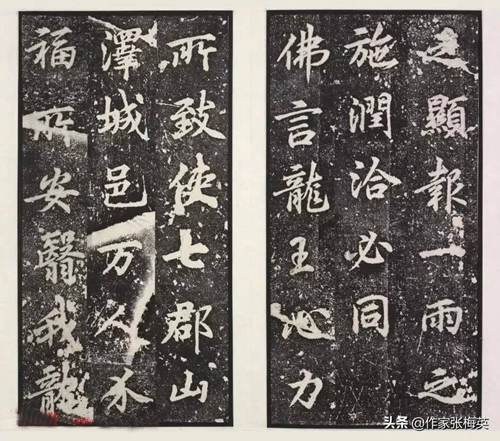 之顯報一雨之
施潤洽必同
佛言龍王心力
所致使七郡山
澤城邑万人水
福所安翳我龍
头条 @作家张梅英